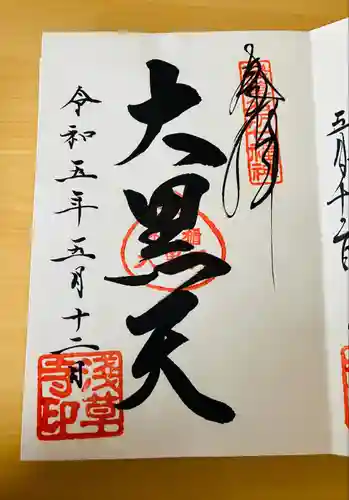 奉拝
大黒天
令和五年五月十二日
浅草寺印
五月十二日